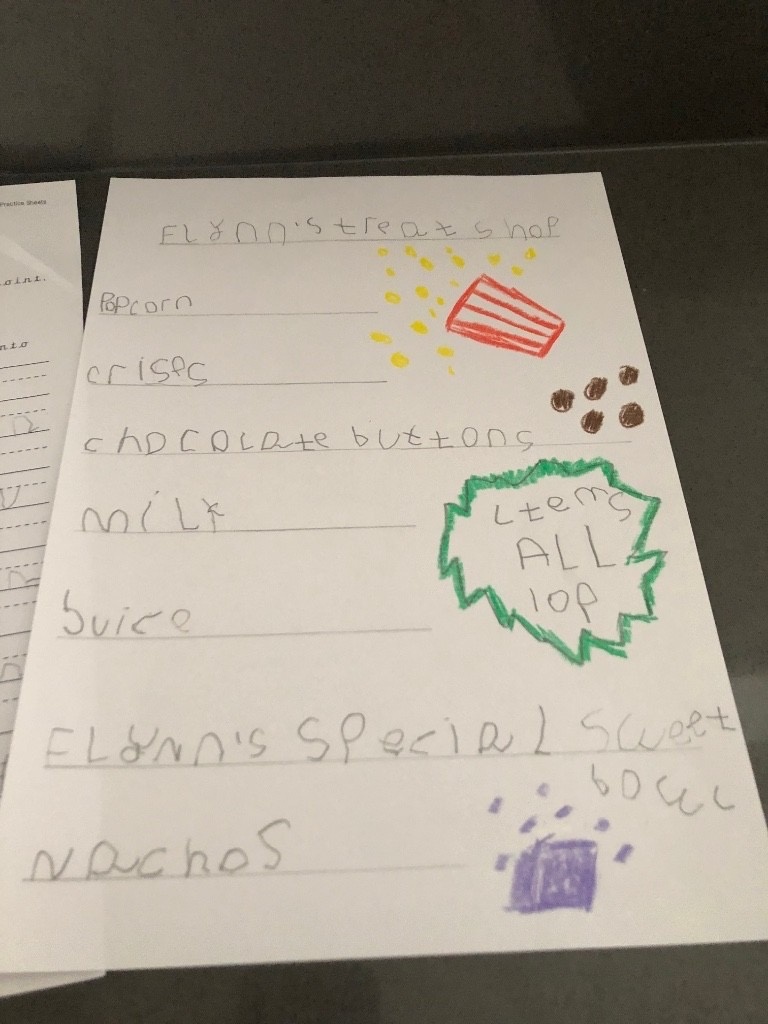 Practice Sheets
oint.
nto
FLYNN'S treat shop
POPcorn
crisps
chocolate buttons
milk
Items
ALL
10p
Juice
FLYNN'S SPecial Sweet
bowl
Nachos